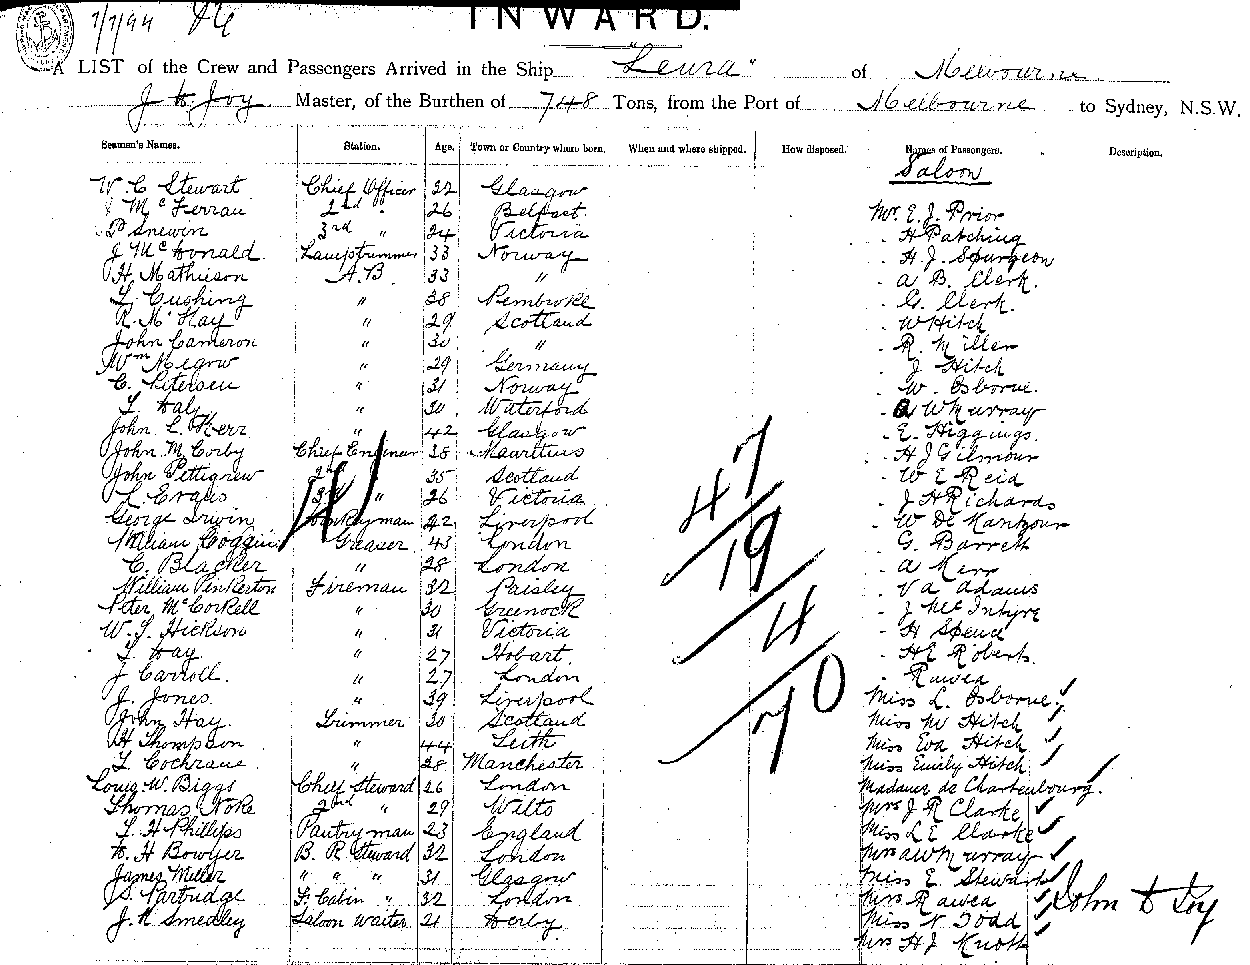 7/7/94
INWARD.
A LIST of the Crew and Passengers Arrived in the Ship "Leura" of Melbourne
J D Joy Master, of the Burthen of 748 Tons, from the Port of Melbourne to Sydney, N.S.W.
Seaman's Names. Station. Age. Town or Country where born. When and where shipped. How disposed. Names of Passengers. Description.
Saloon
W. C Stewart Chief Officer 22 Glasgow
J McFerran 2nd " 26 Belfast Mr. E. J. Prior
3rd " 24 Victoria " H Patching
J McDonald Lamptrimmer 33 Norway " H. J. Spurgeon
H. Mathieson A.B 33 " " A B. Clerk.
L. Cushing " 38 Pembroke " G. Clerk.
R. McHay " 29 Scotland " W Hitch
John Cameron " 30 " " R. Miller
Wm Megow " 29 Germany " J Hitch
C. Petersen " 31 Norway " W. Osborne.
T. Daly " 30 Waterford " A W Murray
John L Kerr " 42 Glasgow " E. Higgings.
John M. Corby Chief Engineer 38 Mauritius " H J Gilmour
John Pettigrew 2nd " 35 Scotland " W E Reid
L. Evans 3rd " 26 Victoria " J H Richards
George Irwin Donkeyman 42 Liverpool " W De
William Coggin Greaser 43 London " G. Barrett
C. Blacker " 28 London " A Kerr
William Pinkerton Fireman 32 Paisley " V A Adams
Peter McCorkell " 30 Greenock " J McIntyre
W. J. Hickson " 31 Victoria " H Spend
T. Hay " 27 Hobart. " H E Roberts.
J Carroll. " 27 London " Rawea
J. Jones. " 39 Liverpool Miss L. Osborne
John Hay. Trimmer 30 Scotland Miss M Hitch
H Thompson " 44 Leith Miss Eva Hitch
T. Cochrane " 28 Manchester Miss Emily Hitch
Louis W. Biggs Chief Steward 26 London Madame de Chartenbourg.
Thomas Noke 2nd " 29 Wilts Mrs J R Clarke
T. H Phillips Pantryman 23 England Miss L E Clarke
H Bowyer B. R Steward 32 London Mrs A W Murray
James Miller " " " 31 Glasgow Miss E. Stewart
J. S. Partridge F. Cabin " 32 London Mrs Rawea
J. N Smedley Saloon Waiter 21 Derby Miss N Todd
Mrs H J Knott
47
19
4
70
John D Joy